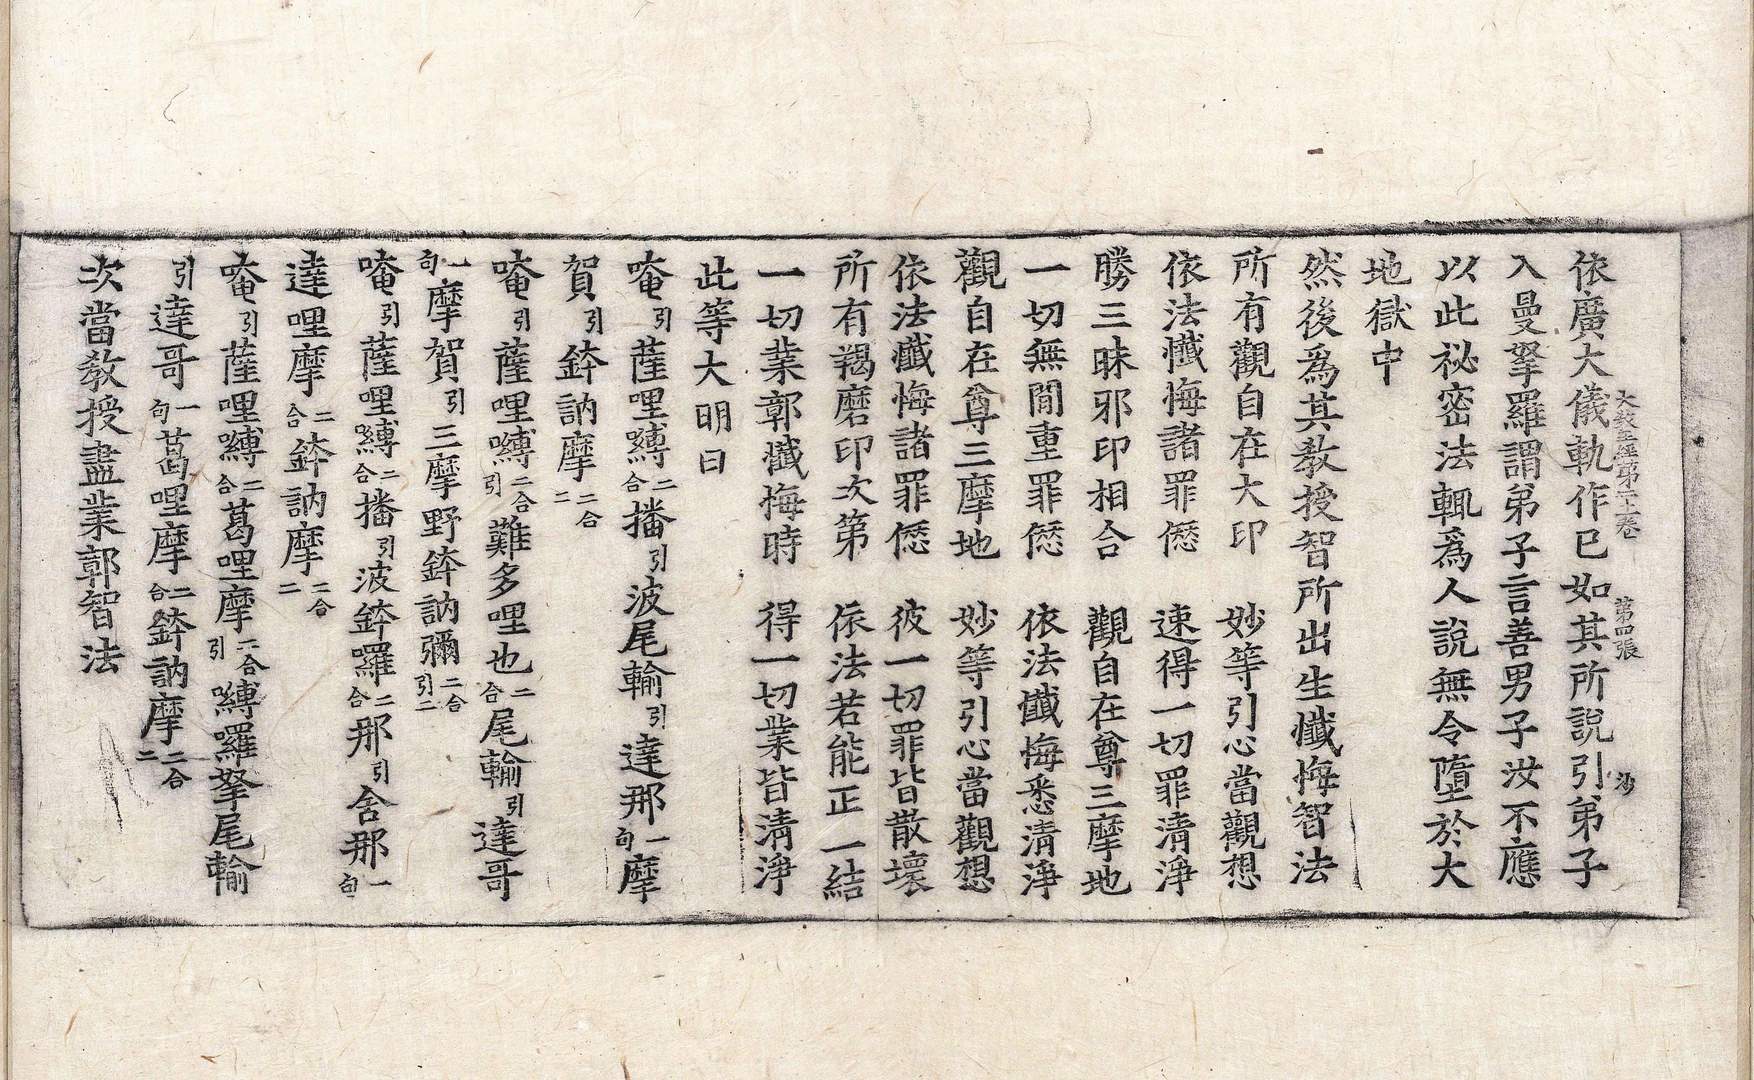 大教王經第二十卷 第四張 沙
依廣大儀軌作已如其所說引弟子
入曼拏羅謂弟子言善男子汝不應
以此祕密法輒爲人說無令墮於大
地獄中
然後爲其教授智所出生懺悔智法
所有觀自在大印 妙等引心當觀想
依法懺悔諸罪愆 速得一切罪清淨
勝三昧邪印相合 觀自在尊三摩地
一切無間重罪愆 依法懺悔悉清淨
觀自在尊三摩地 妙等引心當觀想
依法懺悔諸罪愆 彼一切罪皆散壞
所有羯磨印次第 依法若能正一結
一切業郭懺悔時 得一切業皆清淨
此等大明曰
唵引薩哩嚩二合播引波尾輸引達那一句摩
賀引鉢訥摩二合二
唵引薩哩嚩二合引難多哩也二合尾輸引達哥
一句摩賀引三摩野鉢訥彌二合引二
唵引薩哩嚩二合播引波鉢囉二合那引舍那一句
達哩摩二合鉢訥摩二合二
唵引薩哩嚩二合葛哩摩二合引嚩羅拏尾輸
引達哥一句葛哩摩二合鉢訥摩二合二
次當教授盡業郭智法